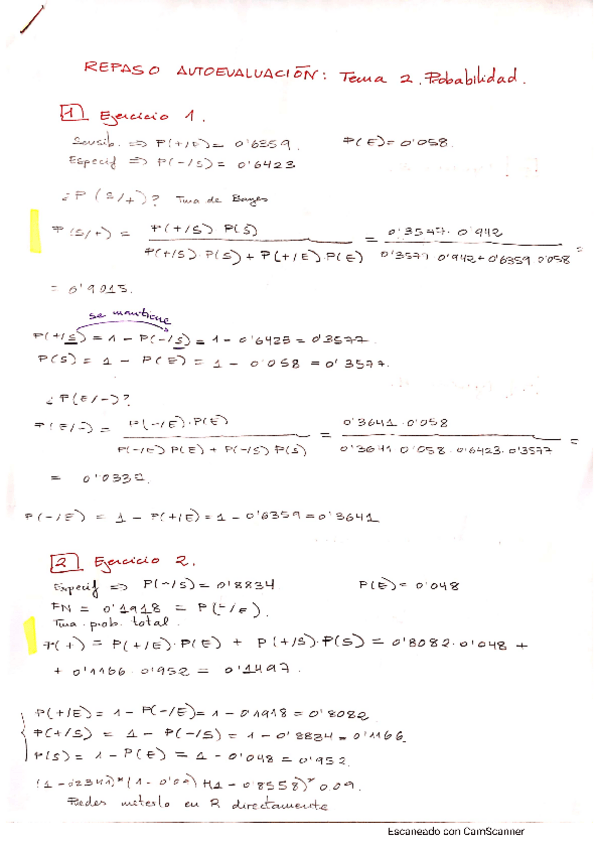 REPASO AUTOEVALUACIÓN: Tema 2. Probabilidad.
1 Ejercicio 1.
Sensib. => P(+/E) = 0'6359 P(E) = 0'058.
Especif => P(-/S) = 0'6423
¿P(S/+)? Tma de Bayes
P(S/+) = P(+/S) P(S) / P(+/S).P(S) + P(+/E).P(E) = 0'3577. 0'942 / 0'3577 0'942 + 0'6359 0'058 =
= 0'9015.
se mantiene
P(+/S) = 1 - P(-/S) = 1 - 0'6423 = 0'3577.
P(S) = 1 - P(E) = 1 - 0'058 = 0'3577.
¿P(E/-)?
P(E/-) = P(-/E).P(E) / P(-/E) P(E) + P(-/S) P(S) = 0'3641 . 0'058 / 0'3641 0'058 . 0'6423 . 0'3577 =
= 0'033
P(-/E) = 1 - P(+/E) = 1 - 0'6359 = 0'3641
2 Ejercicio 2.
Especif => P(-/S) = 0'8834 P(E) = 0'048
FN = 0'1918 = P(-/E).
Tma. prob. total.
P(+) = P(+/E).P(E) + P(+/S).P(S) = 0'8082.0'048 +
+ 0'1166 . 0'952 = 0'1497.
P(+/E) = 1 - P(-/E) = 1 - 0'1918 = 0'8082
P(+/S) = 1 - P(-/S) = 1 - 0'8834 = 0'1166.
P(S) = 1 - P(E) = 1 - 0'048 = 0'952.
(1 - 0.8558)* 0.09.
Puedes meterlo en R directamente
Escaneado con CamScanner